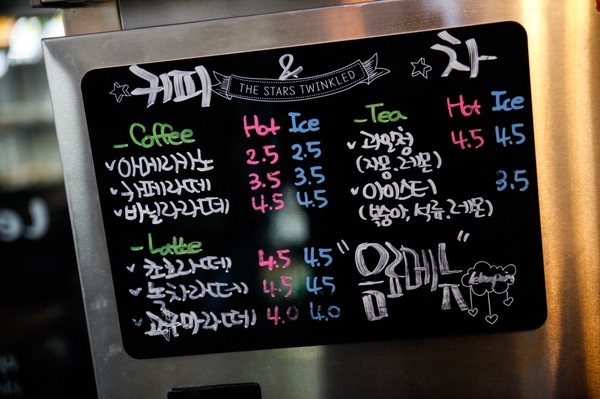 커피 & 차
THE STARS TWINKLED
Coffee Hot Ice
아메리카노 2.5 2.5
카페라떼 3.5 3.5
바닐라라떼 4.5 4.5
Latte
초코라떼 4.5 4.5
녹차라떼 4.5 4.5
고구마라떼 4.0 4.0
Tea Hot Ice
과일청 4.5 4.5
(자몽.레몬)
아이스티 3.5
(복숭아,석류,레몬)
"음료메뉴"